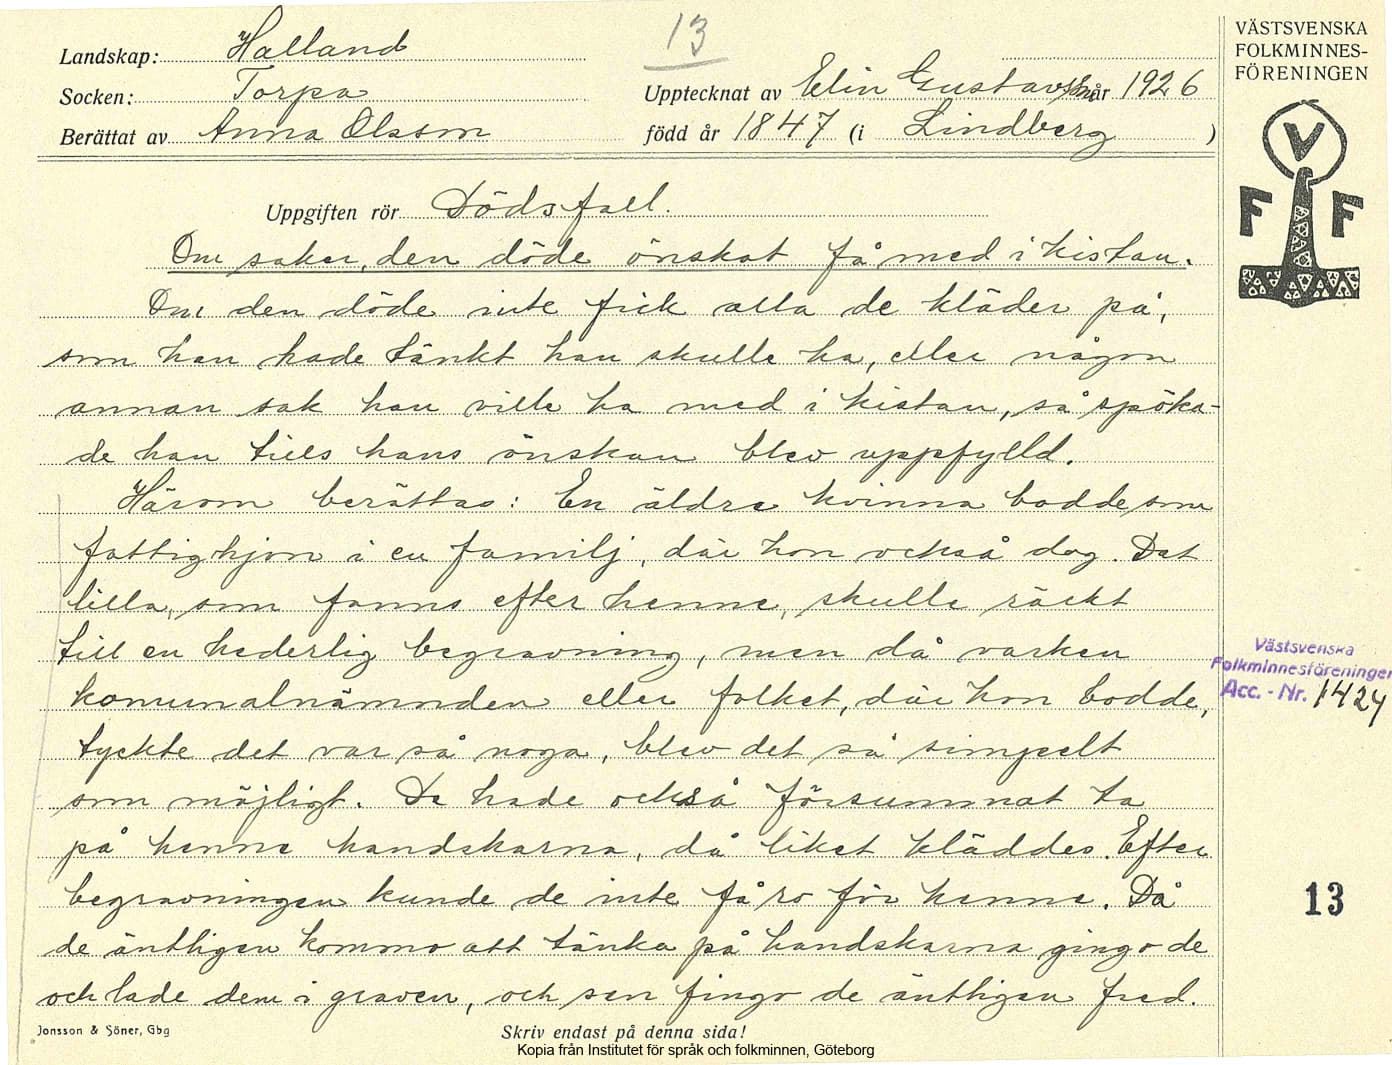 13
Landskap: Halland
Socken: Torpa
Upptecknat av Elin Gustavsson år 1926
Berättat av Anna Olsson
född år 1847 (i Lindberg)
VÄSTSVENSKA
FOLKMINNES-
FÖRENINGEN
V
F F
Uppgiften rör Dödsfall.
Om saker, den döde önskat få med i kistan.
Om den döde inte fick alla de kläder på,
som han hade tänkt han skulle ha, eller någon
annan sak han ville ha med i kistan, så spöka-
de han tills hans önskan blev uppfylld.
Härom berättas: En äldre kvinna bodde som
fattighjon i en familj, där hon också dog. Det
lilla, som fanns efter henne, skulle räckt
till en hederlig begravning, men då varken
komunalnämnden eller folket, där hon bodde,
tyckte det var så noga, blev det så simpelt
som möjligt. De hade också försummat ta
på henne handskarna, då liket kläddes. Efter
begravningen kunde de inte få ro för henne. Då
de äntligen kommo att tänka på handskarna gingo de
och lade dem i graven, och sen fingo de äntligen fred.
Västsvenska
Folkminnesföreningen
Acc. - Nr. 1424
13
Jonsson & Söner, Gbg
Skriv endast på denna sida!
Kopia från Institutet för språk och folkminnen, Göteborg